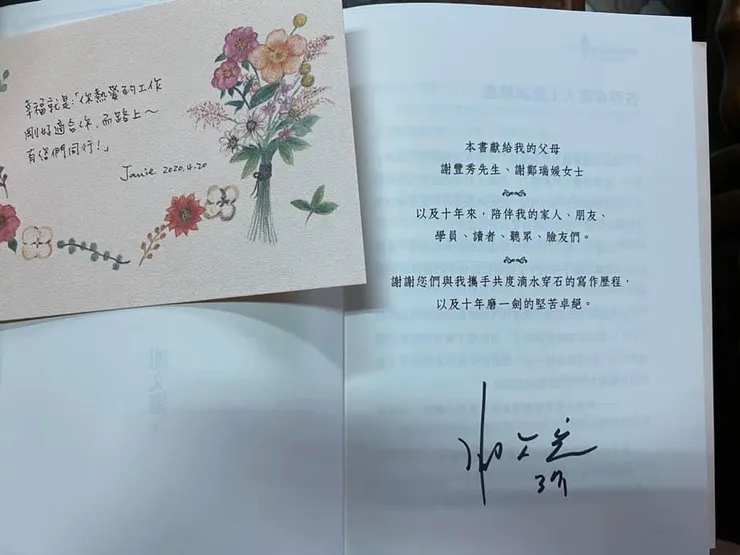 幸福就是:「你熱愛的工作
剛好適合你,而路上~
有您們同行!」
Janie 2020.4.20
本書獻給我的父母
謝豐秀先生、謝鄭瑞媛女士
以及十年來,陪伴我的家人、朋友、
學員、讀者、聽眾、臉友們。
謝謝您們與我攜手共度滴水穿石的寫作歷程,
以及十年磨一劍的堅苦卓絕。